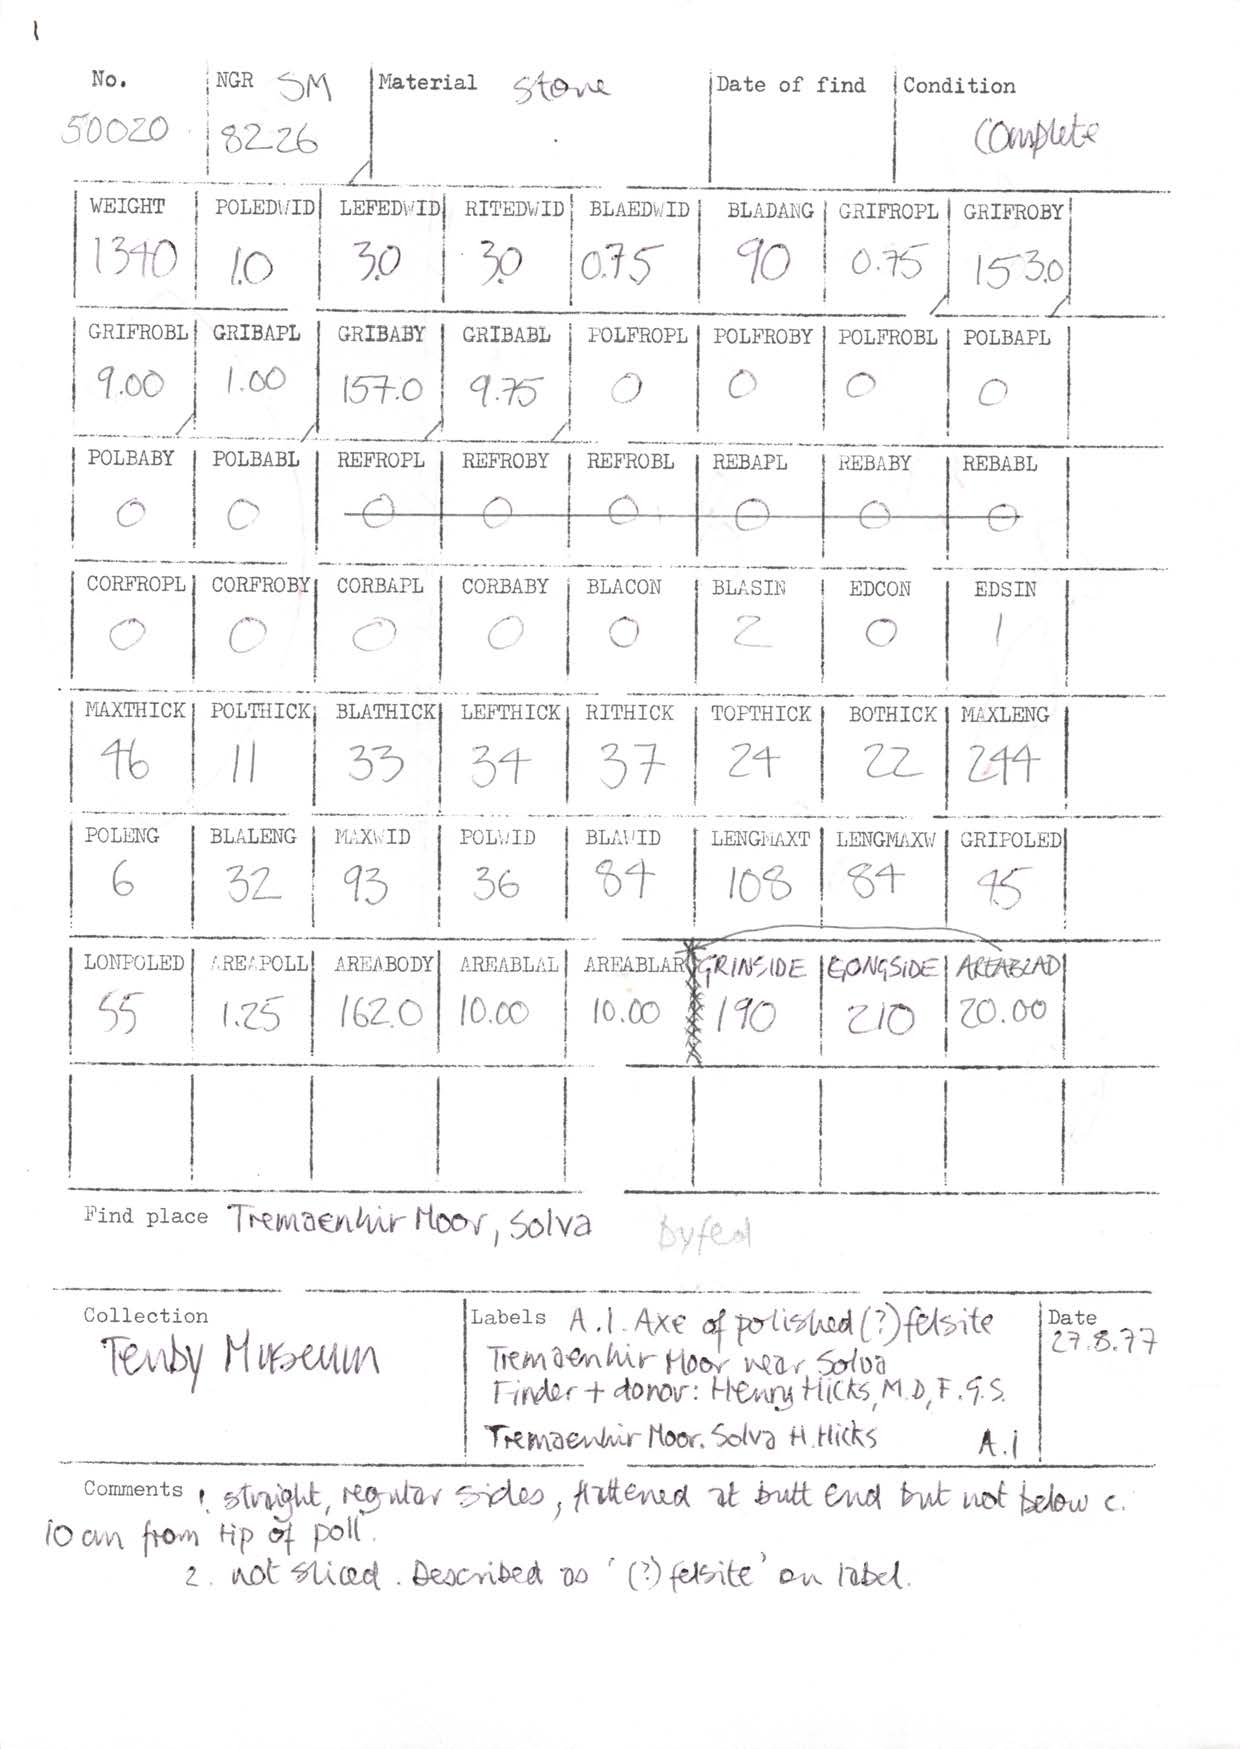 1
No. NGR SM Material stone Date of find Condition
50020 8226 Complete
WEIGHT POLEDWID LEFEDWID RITEDWID BLAEDWID BLADANG GRIFROPL GRIFROBY
1340 1.0 3.0 3.0 0.75 90 0.75 153.0
GRIFROBL GRIBAPL GRIBABY GRIBABL POLFROPL POLFROBY POLFROBL POLBAPL
9.00 1.00 157.0 9.75 0 0 0 0
POLBABY POLBABL REFROPL REFROBY REFROBL REBAPL REBABY REBABL
0 0 0 0 0 0 0 0
CORFROPL CORFROBY CORBAPL CORBABY BLACON BLASIN EDCON EDSIN
0 0 0 0 0 2 0 1
MAXTHICK POLTHICK BLATHICK LEFTHICK RITHICK TOPTHICK BOTHICK MAXLENG
46 11 33 34 37 24 22 244
POLENG BLALENG MAXWID POLWID BLAWID LENGMAXT LENGMAXW GRIPOLED
6 32 93 36 84 108 84 45
LONPOLED AREAPOLL AREABODY AREABLAL AREABLAR GRINSIDE LONGSIDE AREABLAD
55 1.25 162.0 10.00 10.00 190 210 20.00
Find place Tremaenhir Moor, Solva Dyfed
Collection Labels A.1. Axe of polished (?) felsite Date
Tenby Museum Tremaenhir Moor near Solva 27.8.77
Finder + donor: Henry Hicks, M.D, F.G.S.
Tremaenhir Moor. Solva H. Hicks A.1
Comments 1. straight, regular sides, flattened at butt end but not below c.
10 cm from tip of poll.
2. not sliced. Described as '(?) felsite' on label.